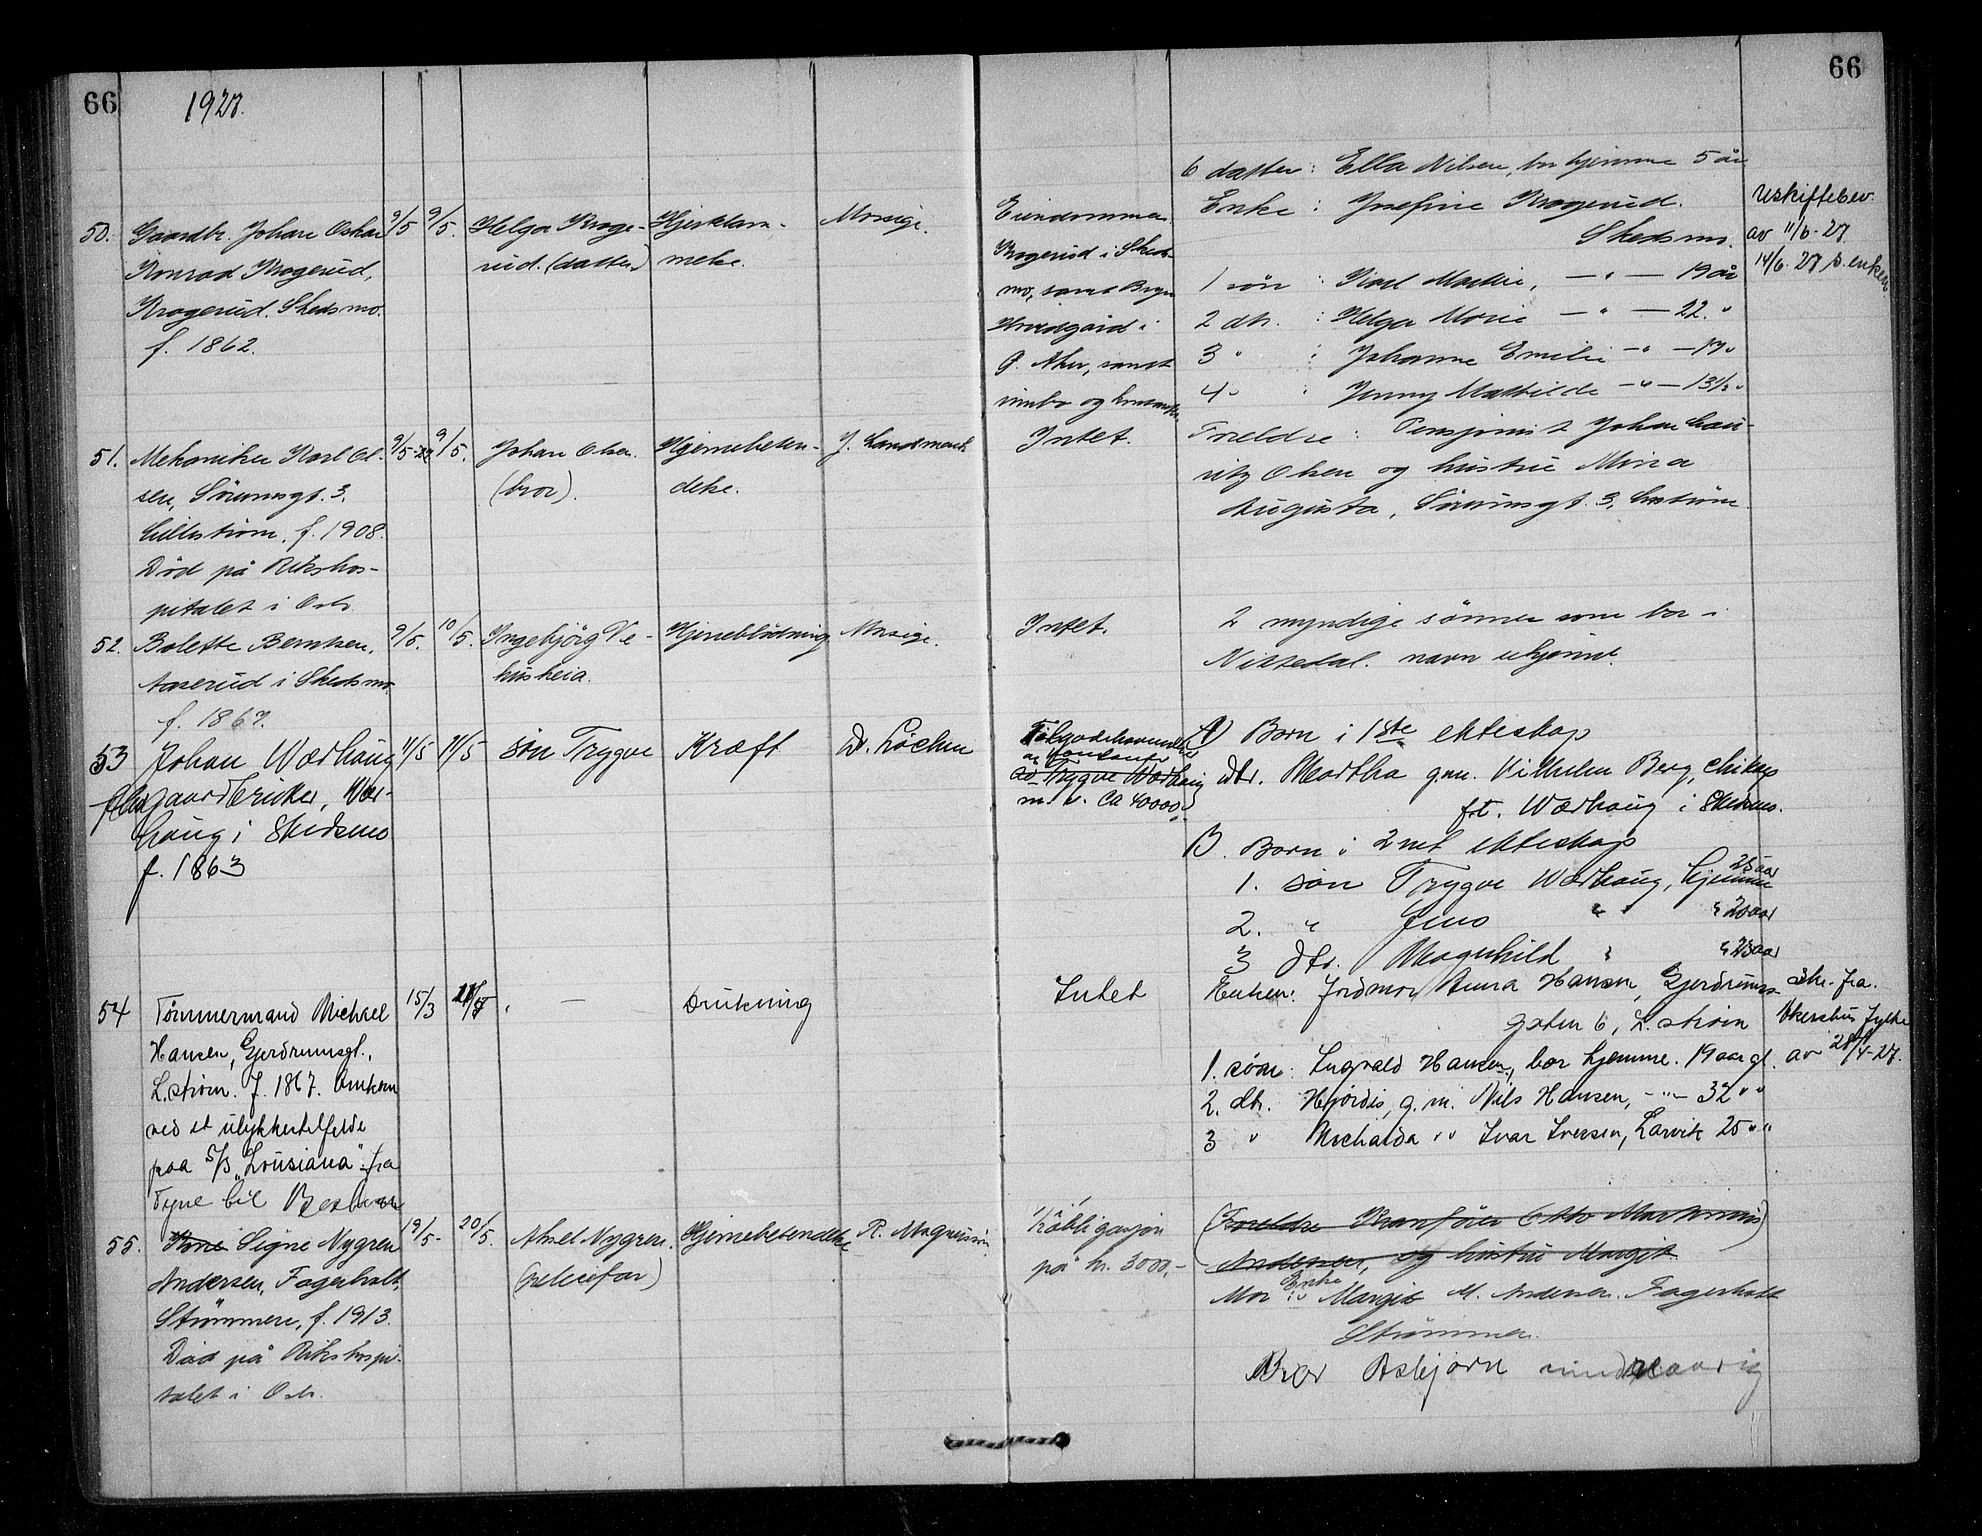 66
1927.
66
6 datter : Ella Nilsen, bor hjemme 5 år
50. Gaardbr. Johan Oskar
Konrad Krogerud,
Krogerud. Skedsmo.
f. 1862.
9/5 9/5.
Helga Kroge-
rud. (datter)
Hjerklam-
melse.
Morsige.
Eiendommen
Krogerud i Skeds-
mo, samt Bryn
Hovedgård i
Ø. Aker, samt
innbo og
Enke : Josefine Krogerud.
Skedsmo.
1 sön : Karl Martin, — " — 19 år
2 dtr. : Helga Marie — " — 22 "
3 " : Johanne Emilie — " — 17 "
4 " : Jenny Mathilde — " — 13½ "
Uskiftebev.
av 11/6-27
14/6-27 s. enken.
51. Mekaniker Karl Ol-
sen, Sörumsgt. 3.
Lillestrøm. f. 1908.
Död på Rikshos-
pitalet i Oslo
9/5-27 9/5.
Johan Olsen.
(bror).
Hjernebeten-
delse.
J. Landmark
Intet.
Foreldre : Pensjonist Johan Lau-
ritz Olsen og hustru Mina
Augusta, Sörumsgt. 3, Lström.
52. Bolette Berntsen,
Aaserud i Skedsmo.
f. 1867.
9/5. 10/5.
Ingebjörg Ve-
husheia.
Hjerneblödning
Morsige.
Intet.
2 myndige sönner som bor i
Nittedal. navn ukjent.
53 Johan Wærhaug
gaardbruker, Wær-
haug i Skedsmo
f. 1863
11/5 11/5
søn Trygve
Kræft
D. Løchen
Tilgodehavende
av Trygve Wærhaug
m. v. ca 40000,-
A) Born i 1ste ekteskap
dtr. Martha g.m. Vilhelm Berg,
frt. Wærhaug i Skedsmo.
B. Born i 2net ekteskap
1. søn Trygve Wærhaug, hjemme 25 aar
2. " Jens " " 20 aar
3 dtr. Magnhild " " 23 aar
54 Tömmermand Michael
Hansen, Gjerdrumsgt.,
L.strøm. f. 1867. Omkom
ved et ulykkestilfelde
paa S/S "Louisiana" fra
Tyne til
15/3
—
Drukning
Intet
Enken: Jordmor Anna Hansen, Gjerdrums-
gaten 6, L. strøm
1. søn: Ingvald Hansen, bor hjemme. 19 aar gl.
2. dtr. Hjördis, g. m. Nils Hansen, - " - 32 " "
3 " Michalda " " Ivar Iversen, Larvik 25 " "
Skr. fra
Akershus fylke
av 28/4-27.
55. Signe Nygren
Andersen, Fagerholt,
Strømmen, f. 1913.
Död på Rikshospi-
talet i Oslo.
19/5- 20/5.
Aksel Nygren.
(pleiefar)
Hjernebetendelse
R. Magnusson
1 obligasjon
på kr. 3000,-
(Foreldre Kranfører Otto Martinius)
Andersen, og hustru Margit
Enke
Mor : Margit M. Andersen. Fagerholt
Strømmen.
Bror Asbjørn mindreaarig